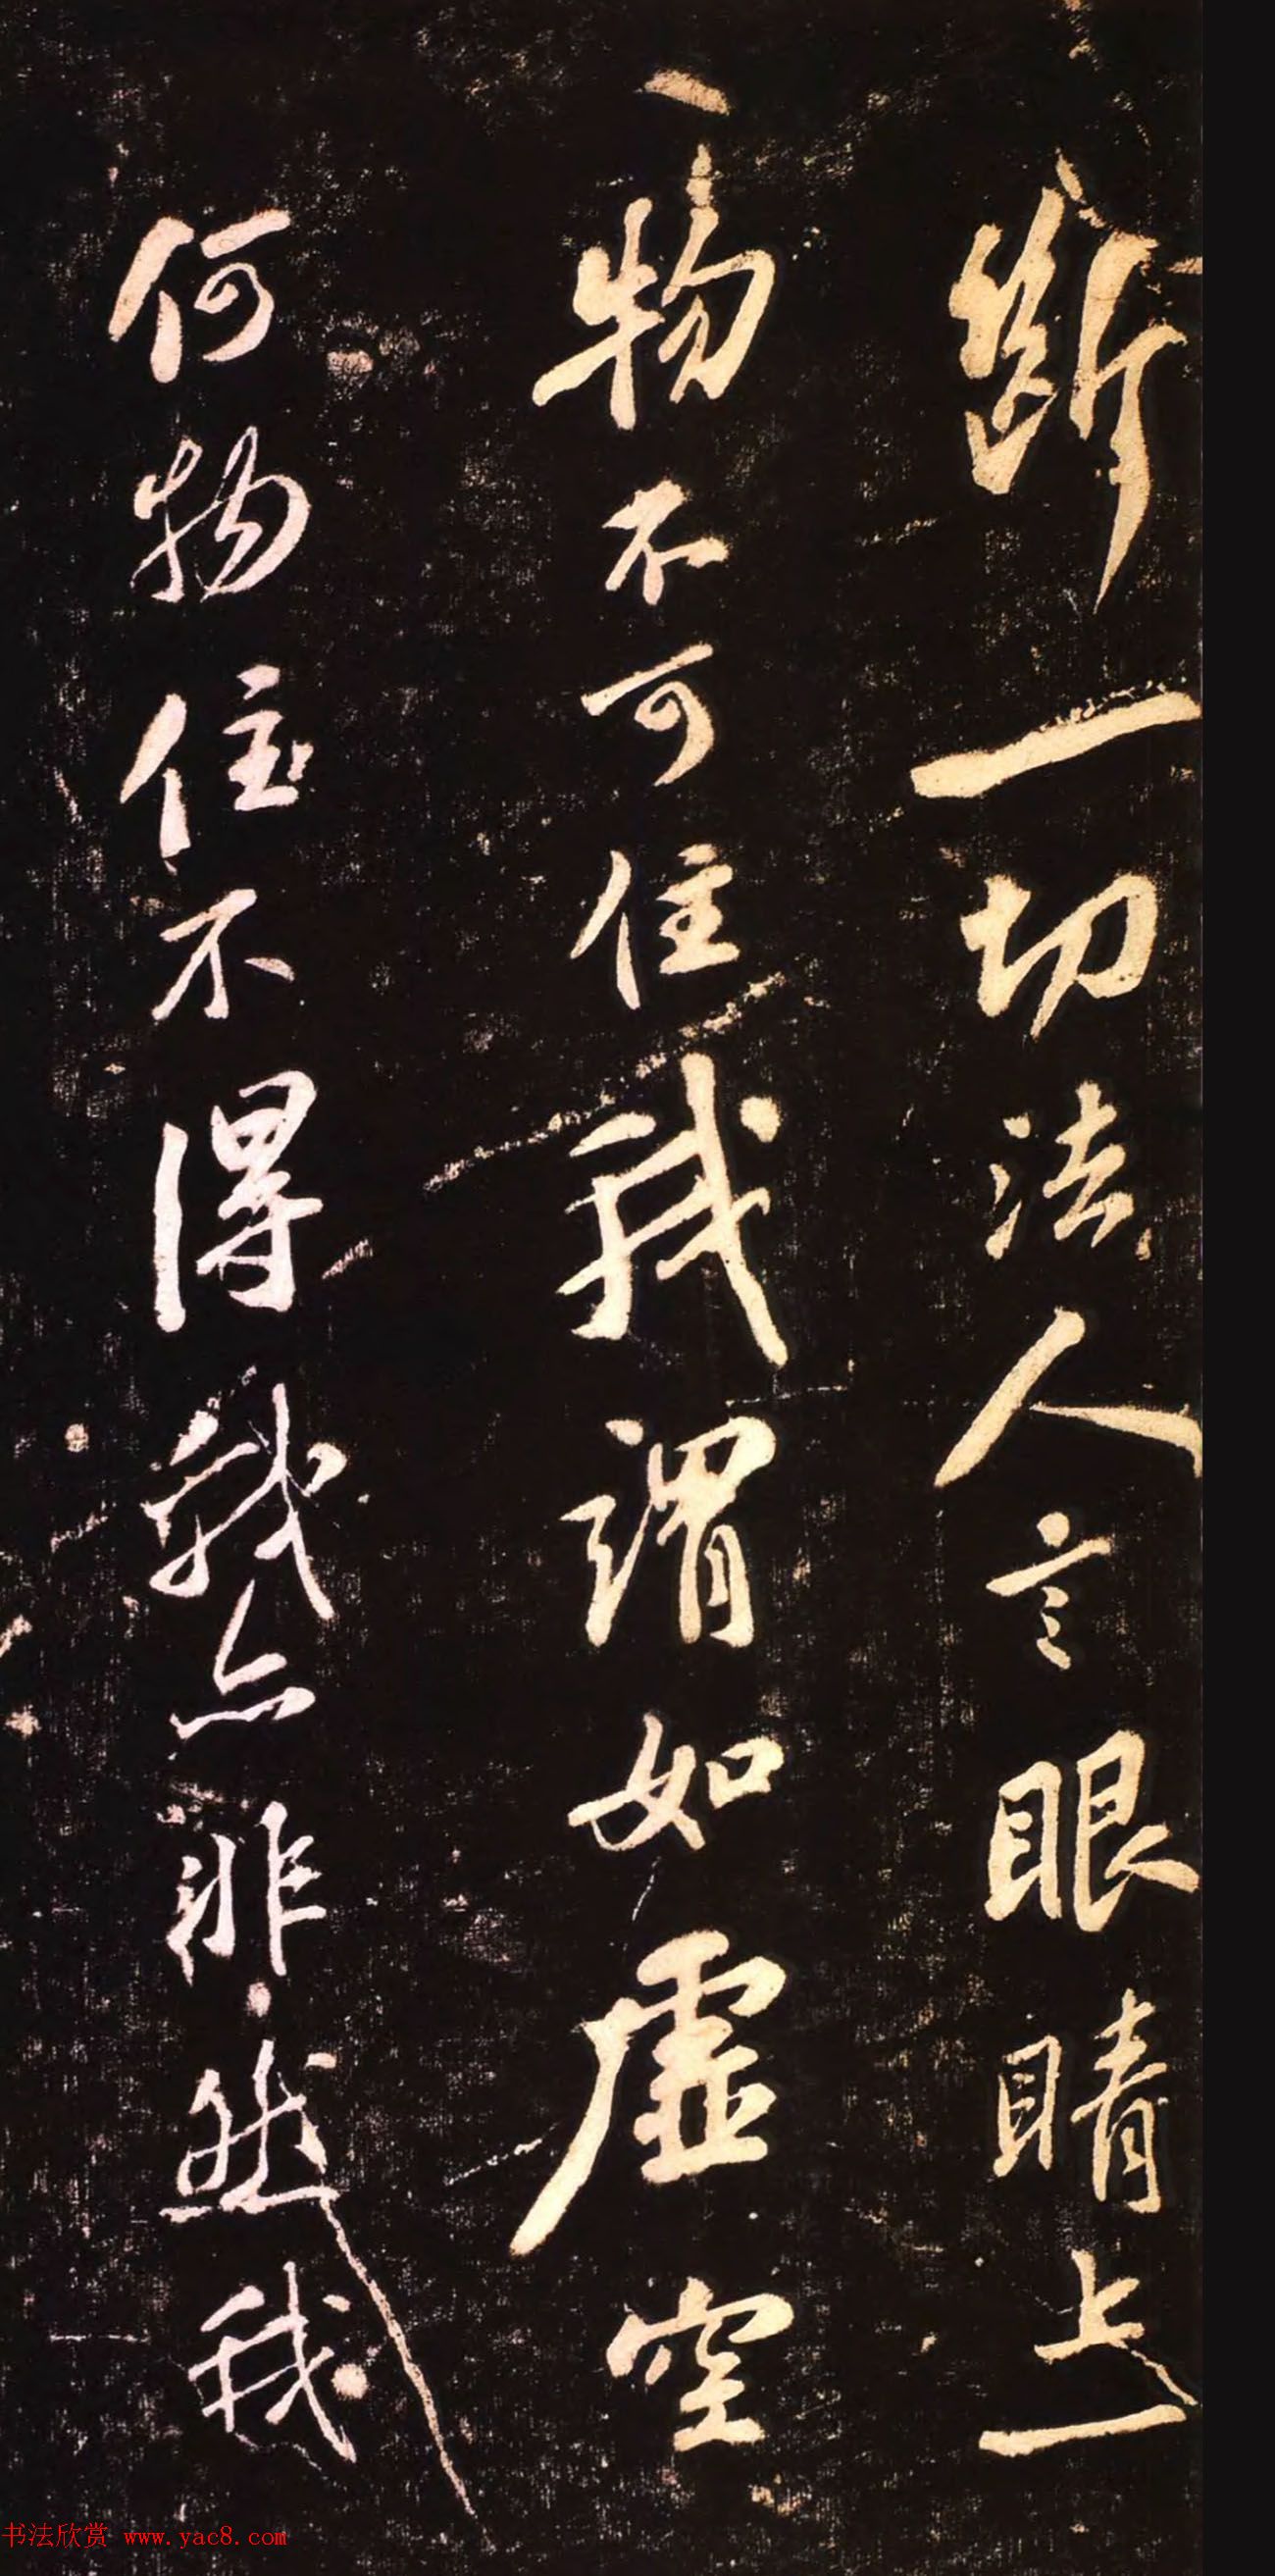 断一切法人言眼睛上一
物不可住我謂如虚空
何物住不得我亦非然我
书法欣赏 www.yac8.com